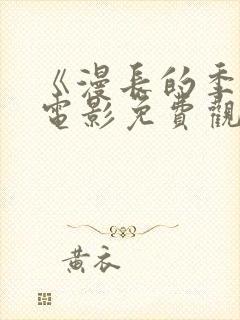 《漫長的季
電影免費觀
黃衣